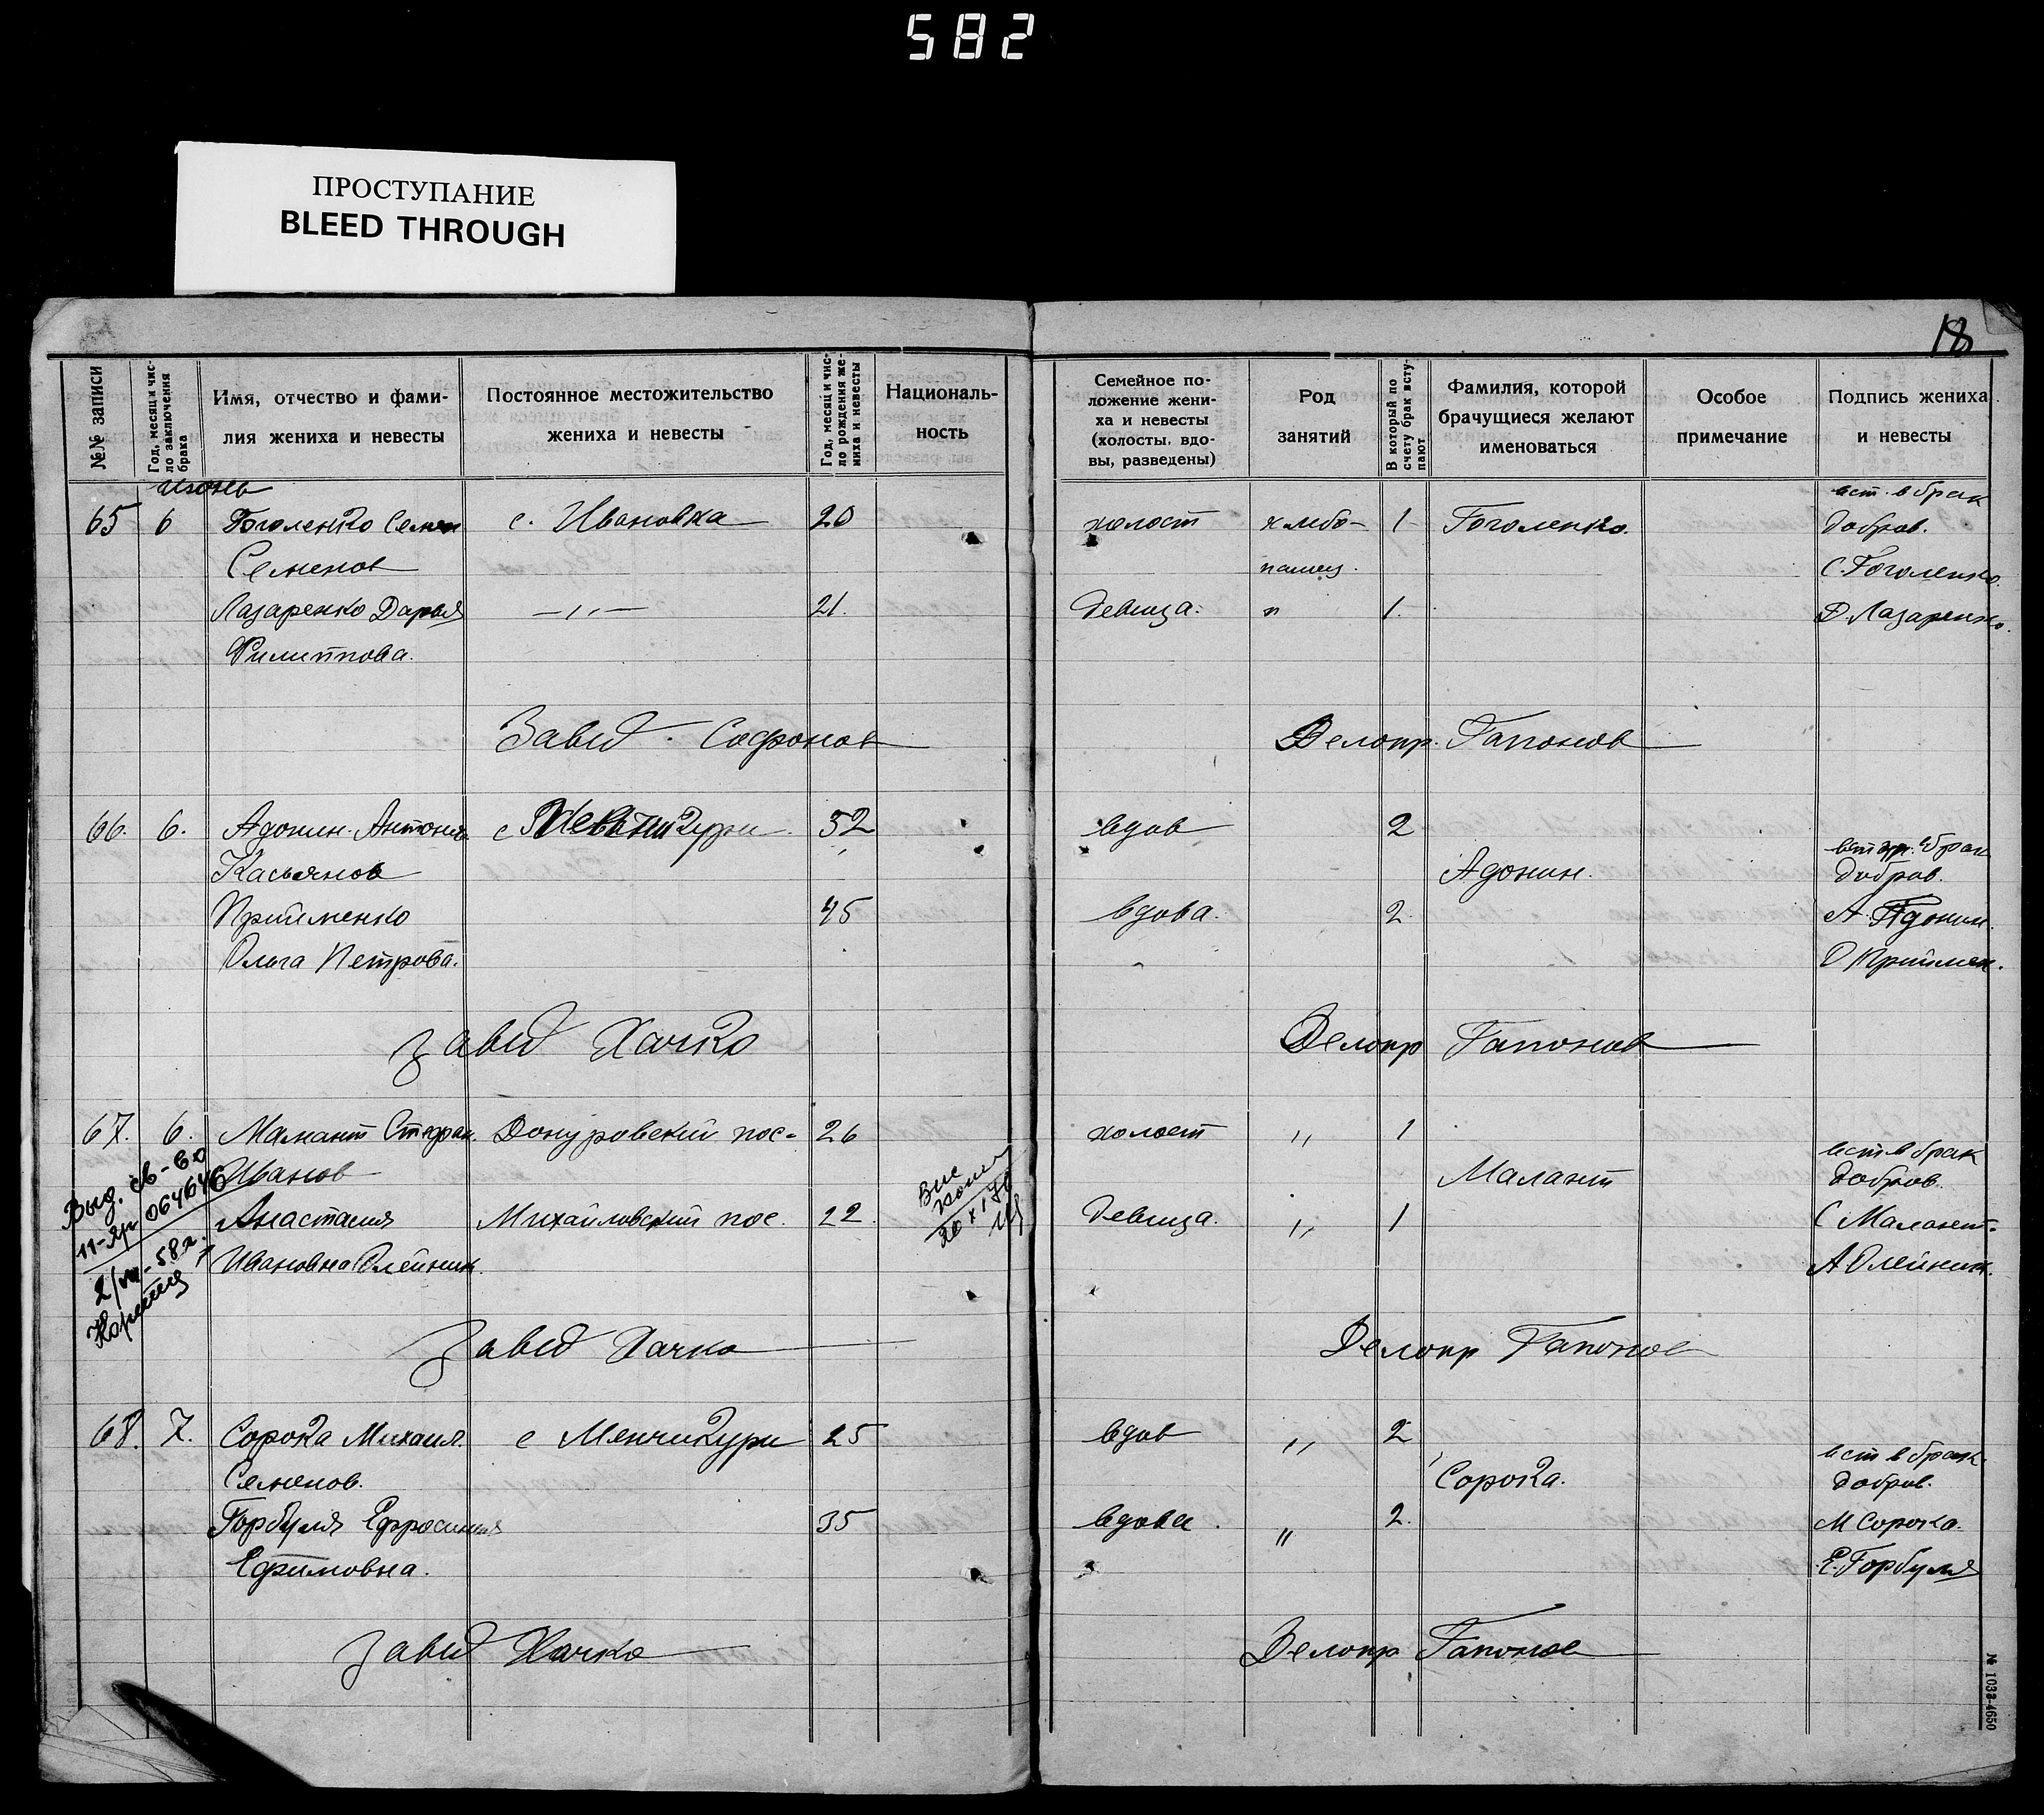 582
ПРОСТУПАНИЕ
BLEED THROUGH
18
№№ записи
Год, месяц и чис-
ло заключения
брака
Имя, отчество и фами-
лия жениха и невесты
Постоянное местожительство
жениха и невесты
Год, месяц и чис-
ло рождения же-
ниха и невесты
Националь-
ность
Семейное по-
ложение жени-
ха и невесты
(холосты, вдо-
вы, разведены)
Род
занятий
В который по
счету брак всту-
пают
Фамилия, которой
брачущиеся желают
именоваться
Особое
примечание
Подпись жениха
и невесты
июнь
вст. в брак
65 6 Гоголенко Семен с. Ивановка 20 холост хлебо- 1 Гоголенко. добров.
Семенов пашец. С. Гоголенко.
Лазаренко Дарья —〃— 21. девица. п 1. Д. Лазаренко.
Филиппова.
Завед. Софронов Делопр. Гапонов
66. 6. Адонин Антон с 32 вдов 2
Касьянов Адонин. брак
добров.
Прийменко 45 вдова. 2. А. Адонин.
Ольга Петрова. О Приймен.
Завед Хачко Делопр Гапонов
67. 6. Малант Стефан. пос- 26 холост 〃 1
Иванов Малант вст в брак
добров.
Анастасия Михайловский пос. 22. девица. 〃 1 С Малант.
Ивановна Олейник. А Олейник.
Выд. св-во
11-яр 064646
2/VII-58 г.
20 X 170
Завед Хачко Делопр Гапонов
68. 7. Сорока Михаил. с Менчикури 25 вдов 〃 2
Семенов. Сорока. вст в брак
добров.
Горбуля Ефросиния 35 вдова. 〃 2. М Сорока.
Ефимовна. Е. Горбуля
Завед Хачко Делопр Гапонов
№ 1033-4650